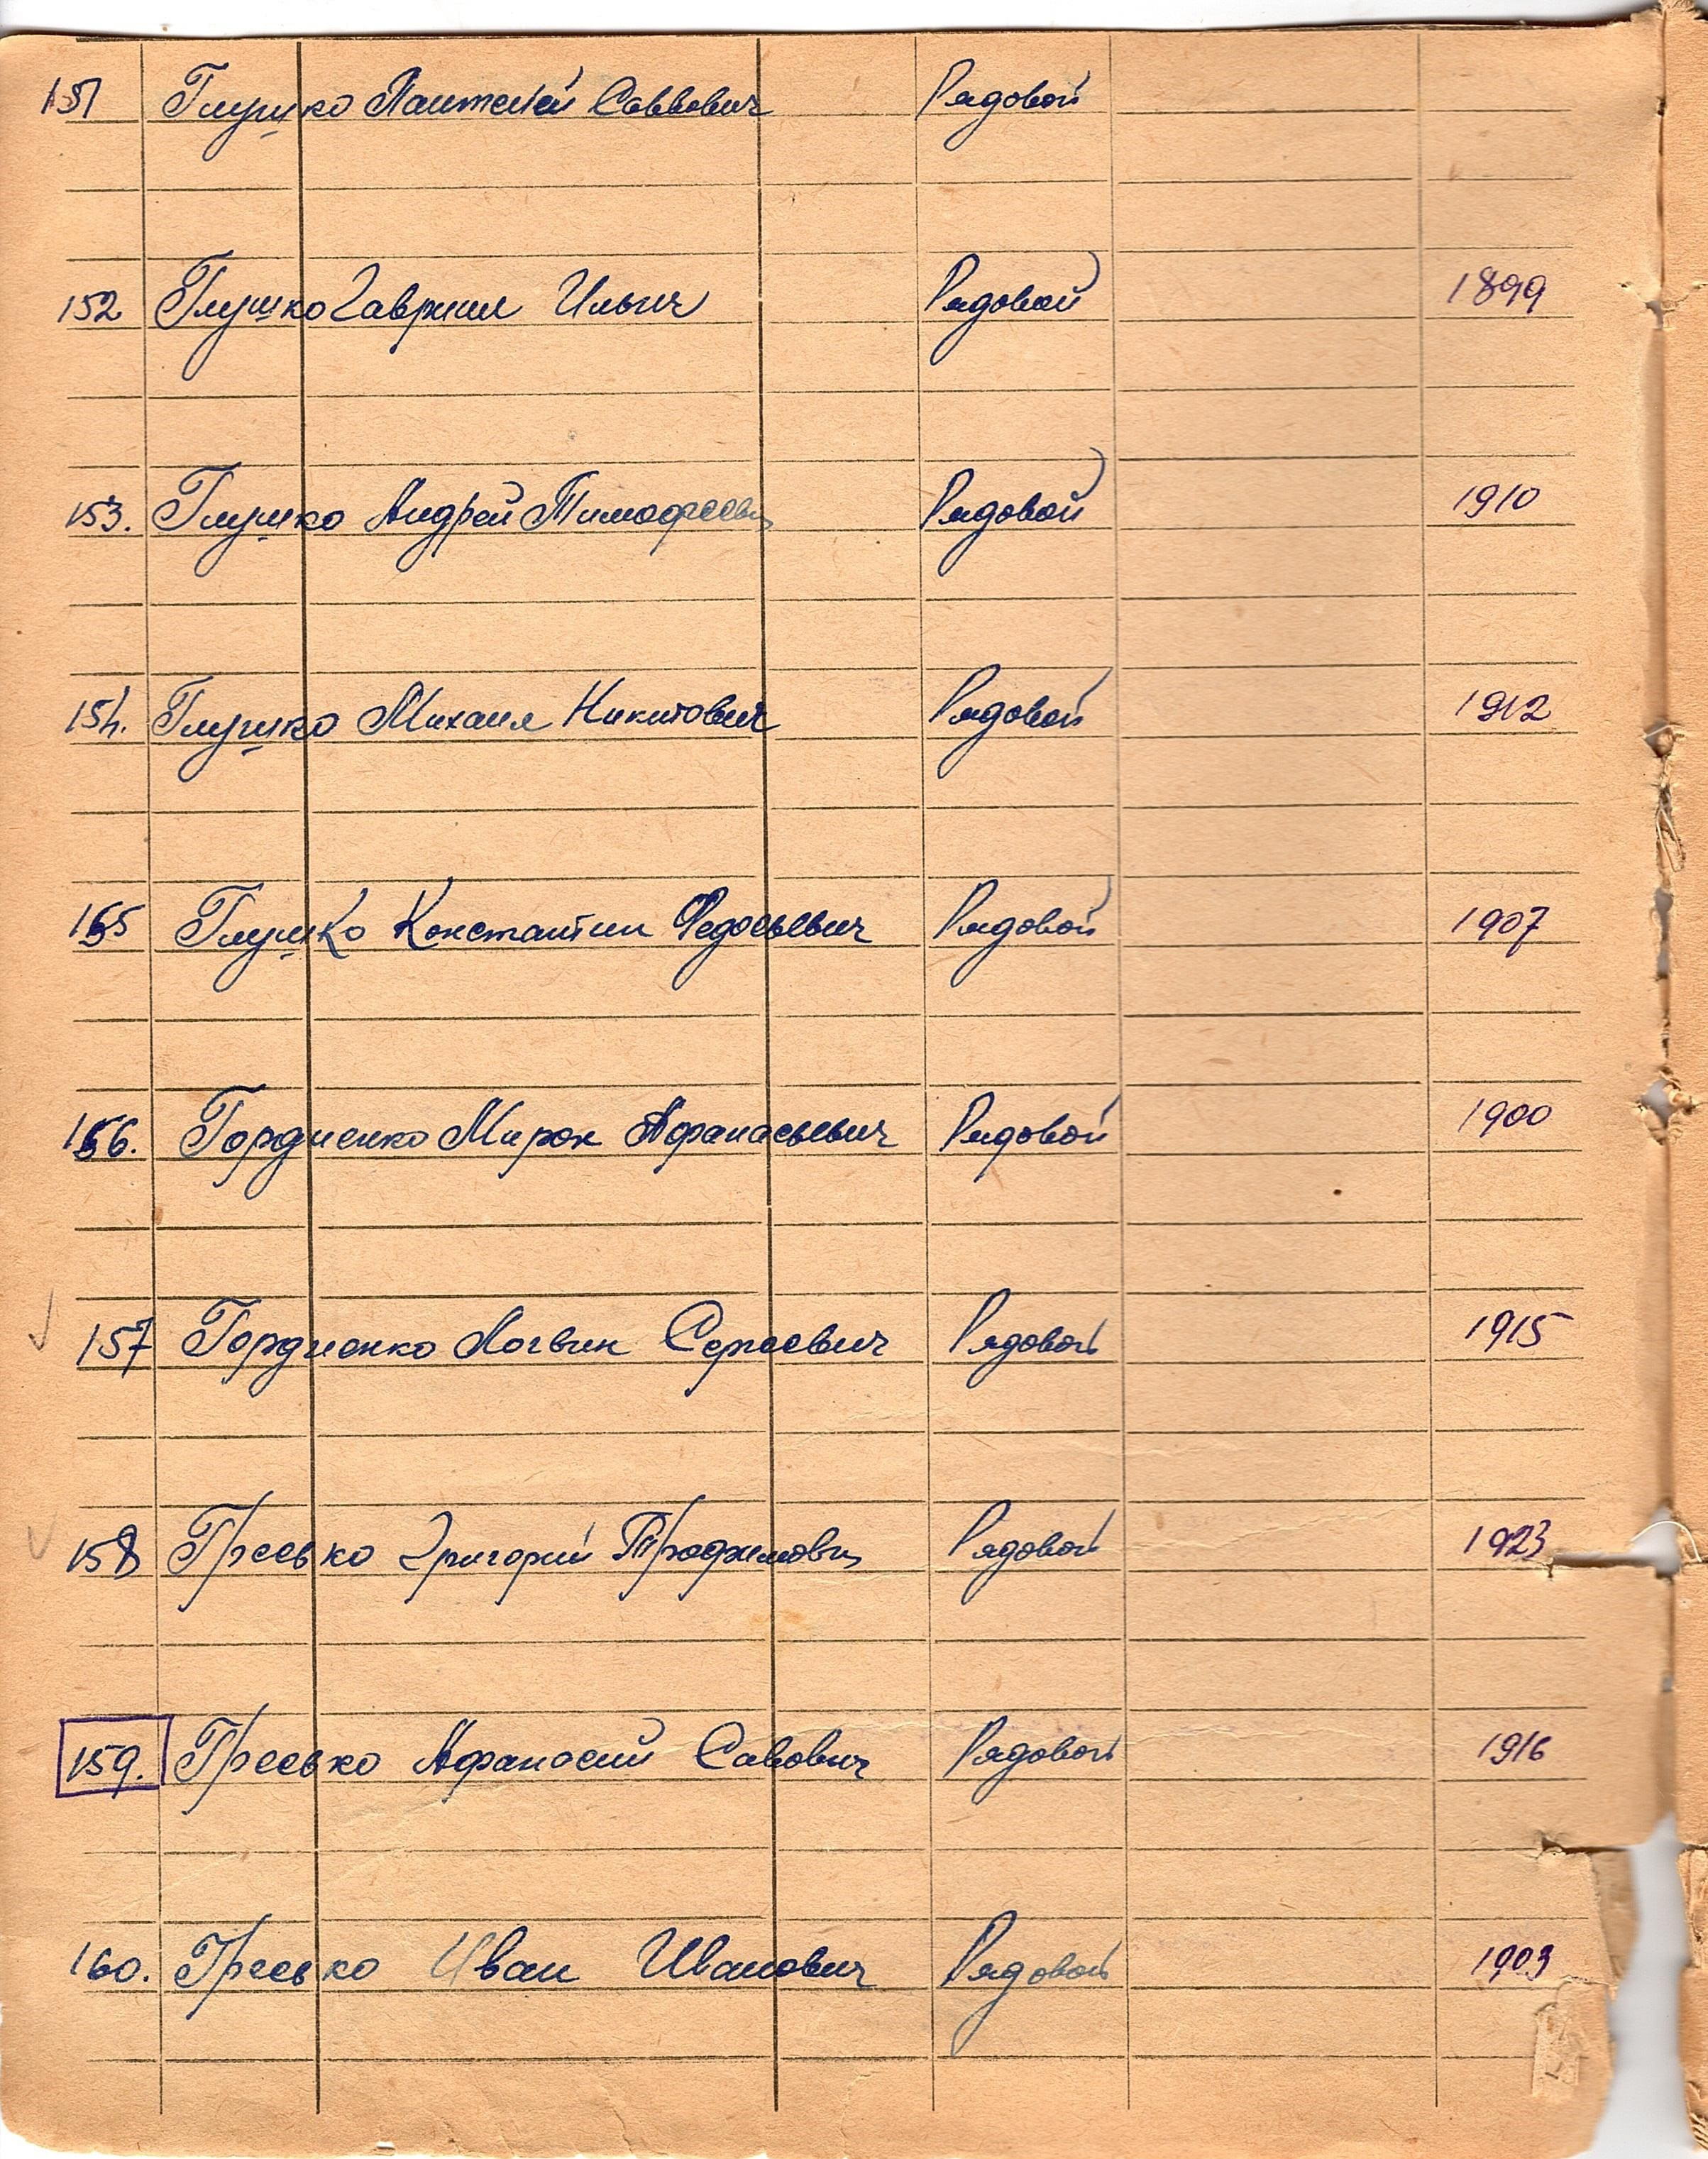 151 Глушко Пантелей Саввович Рядовой
152 Глушко Гавриил Ильич Рядовой 1899
153. Глушко Андрей Тимофеевич Рядовой 1910
154. Глушко Михаил Никитович Рядовой 1912
155 Глушко Константин Федосьевич Рядовой 1907
156. Гордиенко Мирон Афанасьевич Рядовой 1900
157 Гордиенко Логвин Сергеевич Рядовой 1915
158 Гресько Григорий Трофимович Рядовой 1923
159. Гресько Афанасий Савович Рядовой 1916
160. Гресько Иван Иванович Рядовой 1903